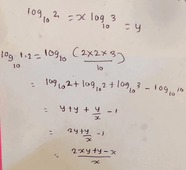 log₁₀ 2 = x log₁₀ 3 = y
log₁₀ 1.2 = log₁₀ (2×2×3 / 10)
= log₁₀ 2 + log₁₀ 2 + log₁₀ 3 - log₁₀ 10
= y + y + y/x - 1
= 2y + y/x - 1
= 2xy + y - x / x